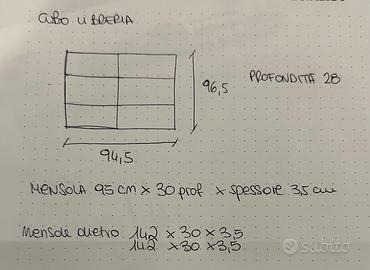 CUBO LIBRERIA
96,5
PROFONDITÀ 28
94,5
MENSOLA 95 cm x 30 prof x spessore 3,5 cm
Mensole dietro 142 x 30 x 3,5
142 x 30 x 3,5
subito